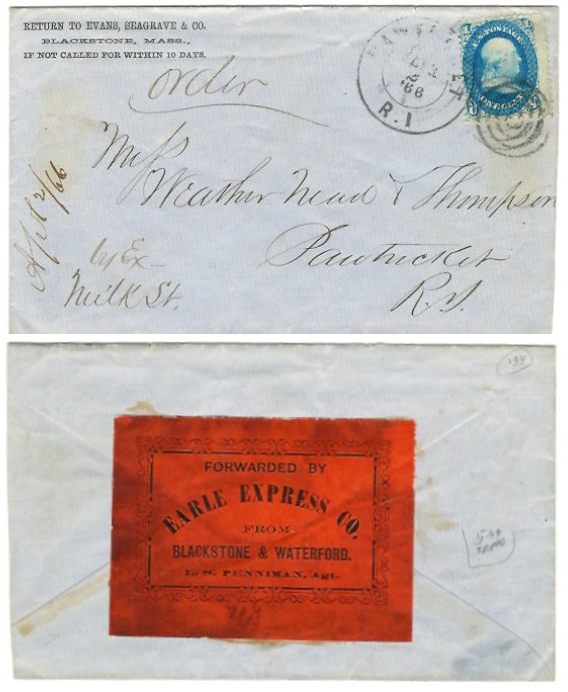 RETURN TO EVANS, SEAGRAVE & CO.
BLACKSTONE, MASS.,
IF NOT CALLED FOR WITHIN 10 DAYS.
order
PAWTUCKET
2
'66
R.I
U.S. POSTAGE
ONE CENT
Apl 2/66
Mess
Weather head & Thompson
Pawtucket
R.I.
by Ex-
Milk St.
FORWARDED BY
EARLE EXPRESS CO.
FROM
BLACKSTONE & WATERFORD.
L. S. PENNIMAN, Agt.